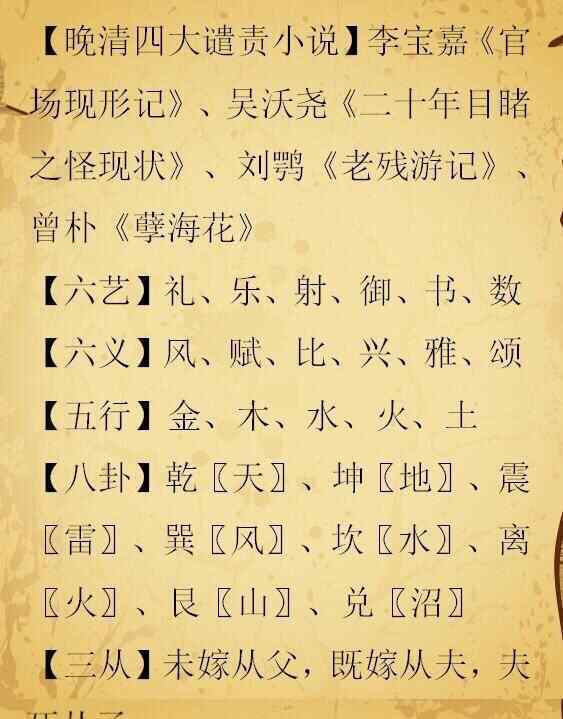 【晚清四大谴责小说】李宝嘉《官
场现形记》、吴沃尧《二十年目睹
之怪现状》、刘鹗《老残游记》、
曾朴《孽海花》
【六艺】礼、乐、射、御、书、数
【六义】风、赋、比、兴、雅、颂
【五行】金、木、水、火、土
【八卦】乾〖天〗、坤〖地〗、震
〖雷〗、巽〖风〗、坎〖水〗、离
〖火〗、艮〖山〗、兑〖沼〗
【三从】未嫁从父，既嫁从夫，夫